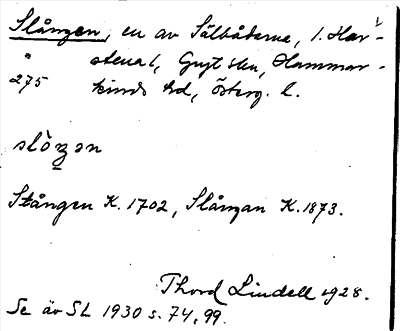 Slången, en av Sälbåderna, l. Har-
" stena 1, Gryt skn, Hammar-
275 kinds hd, Österg. l.
slòŋən
Stången K. 1702, Slången K. 1873.
Thord Lindell 1928.
Se äv SL 1930 s. 74, 99.